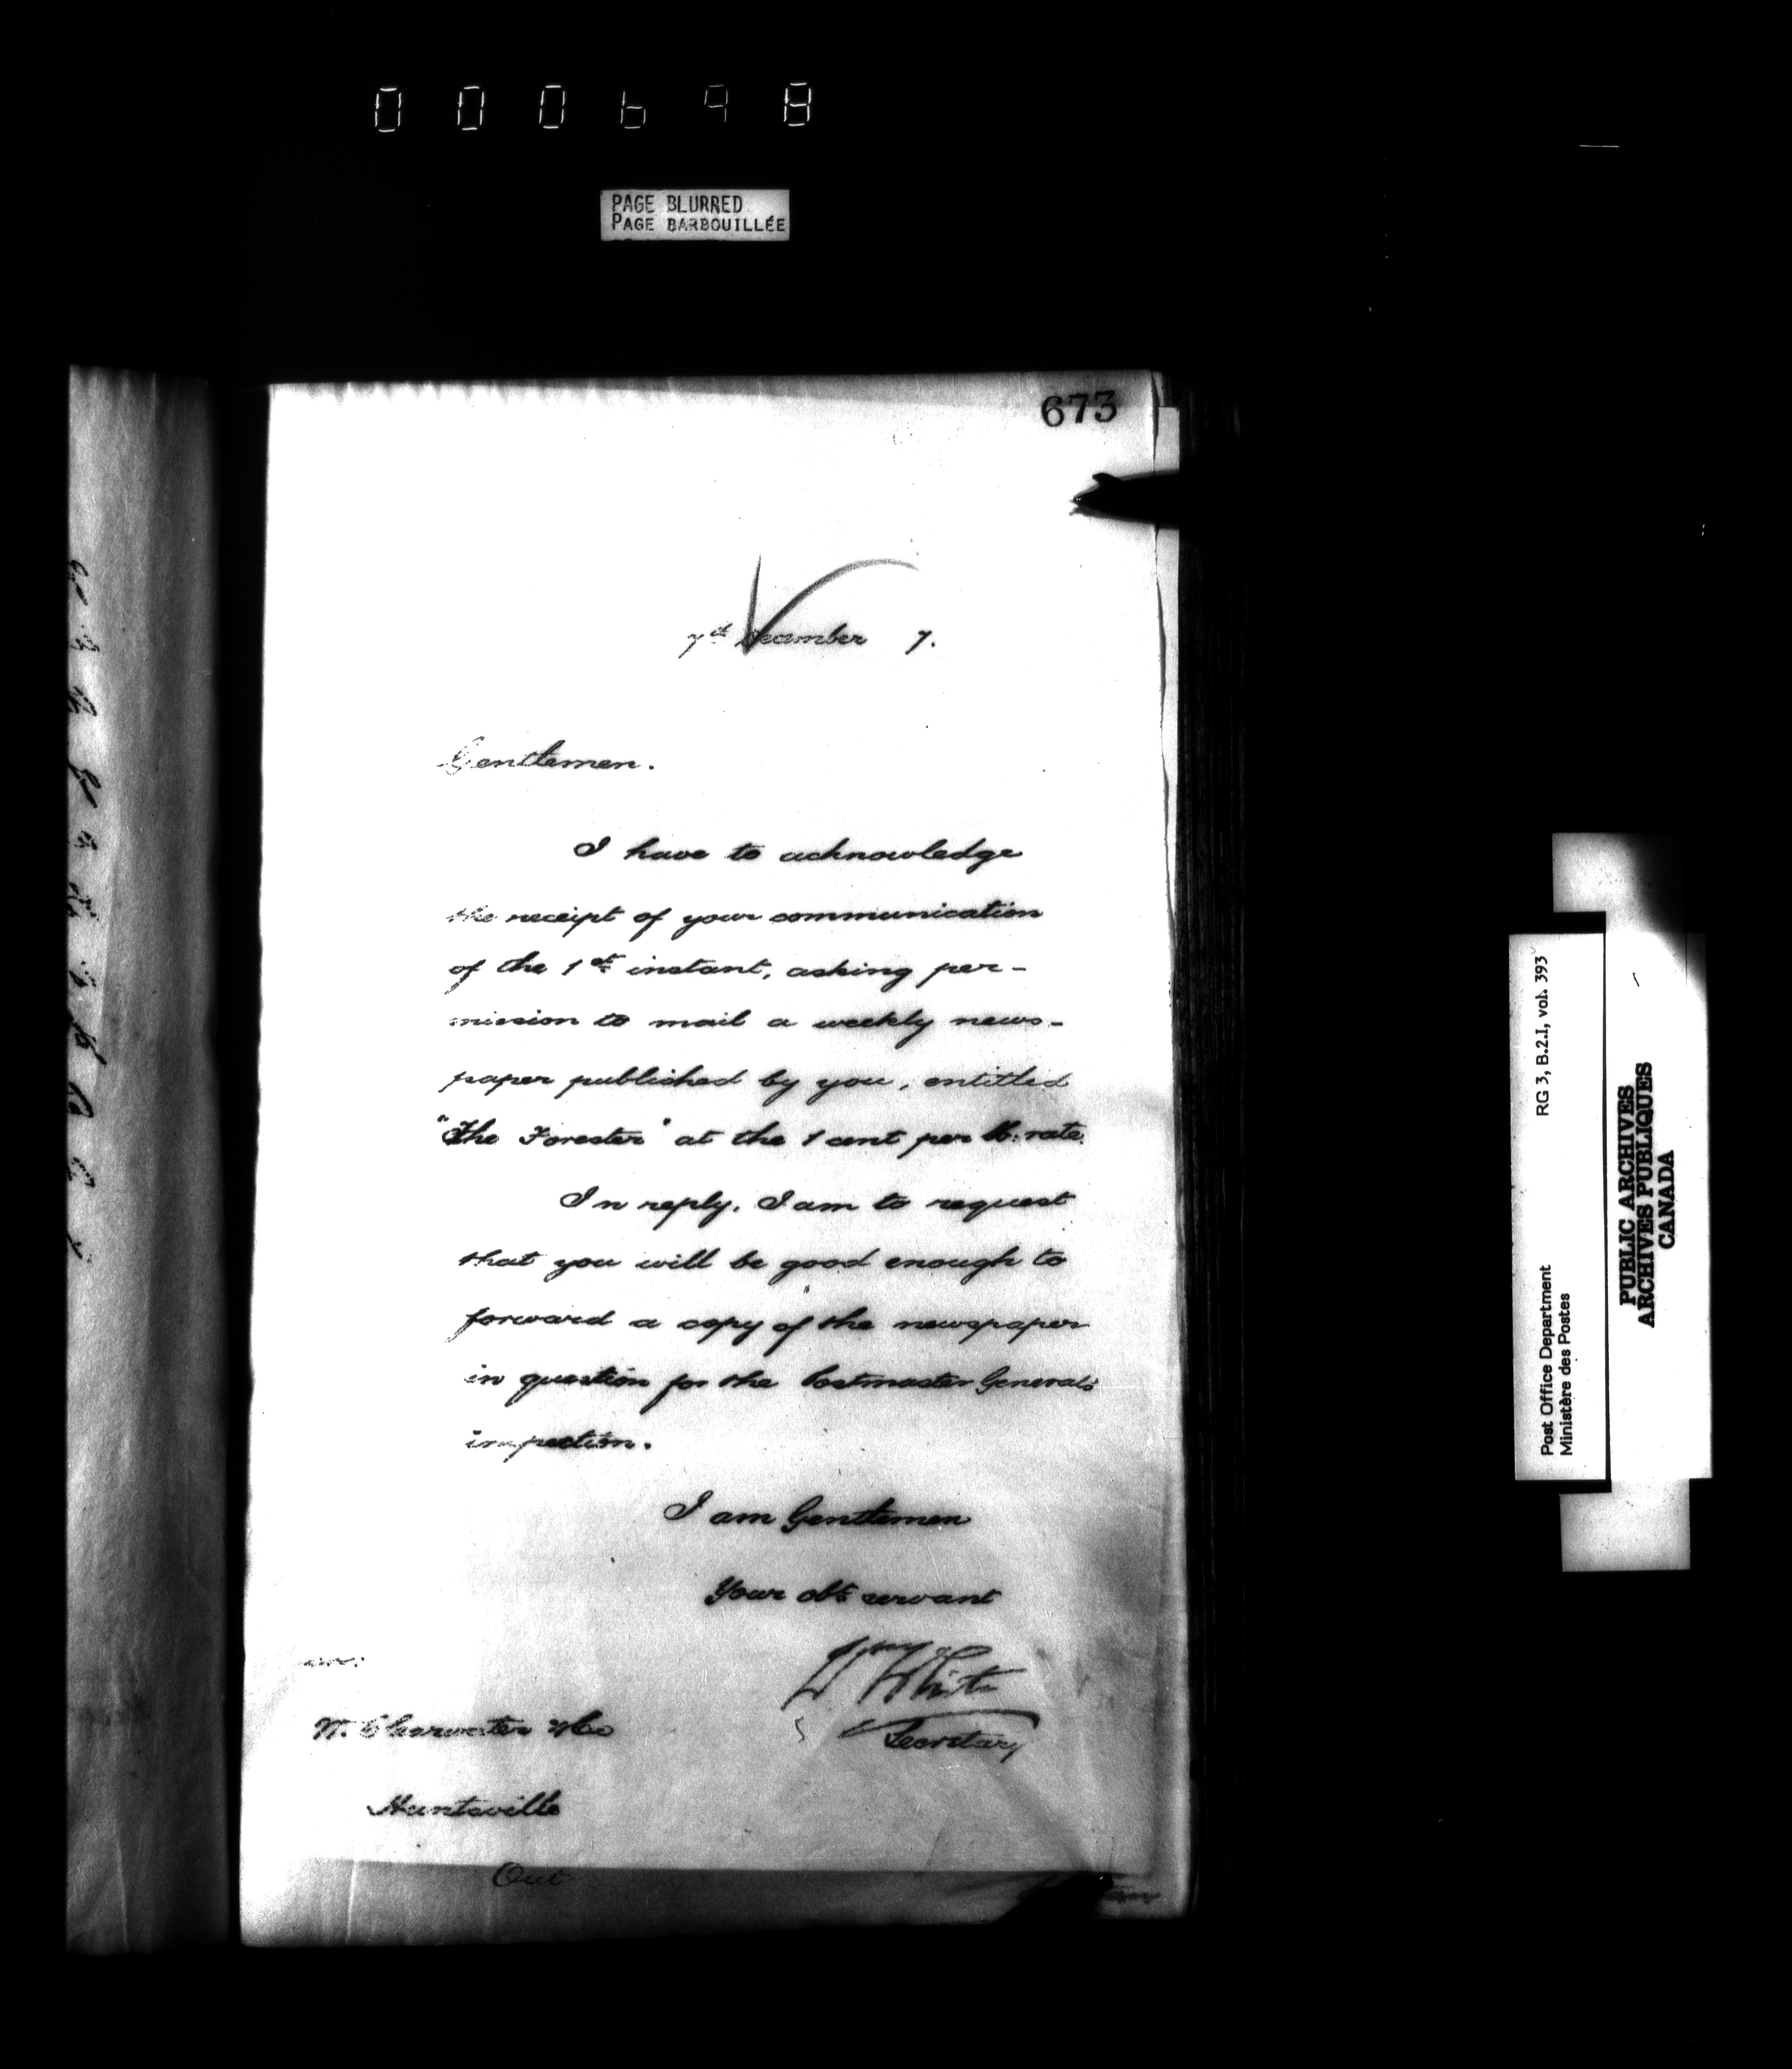 000698
PAGE BLURRED
PAGE BARBOUILLÉE
673
7th December 7.
Gentlemen.
I have to acknowledge
the receipt of your communication
of the 1st instant, asking per-
mission to mail a weekly news-
paper published by you, entitled
"The Forester" at the 1 cent per lb: rate.
In reply, I am to request
that you will be good enough to
forward a copy of the newspaper
in question for the Postmaster General's
inspection.
I am Gentlemen
Your obt servant
Wm White
Secretary
Clearwater & Co
Huntsville
Out
RG 3, B.2.I, vol. 393
Post Office Department
Ministère des Postes
PUBLIC ARCHIVES
ARCHIVES PUBLIQUES
CANADA